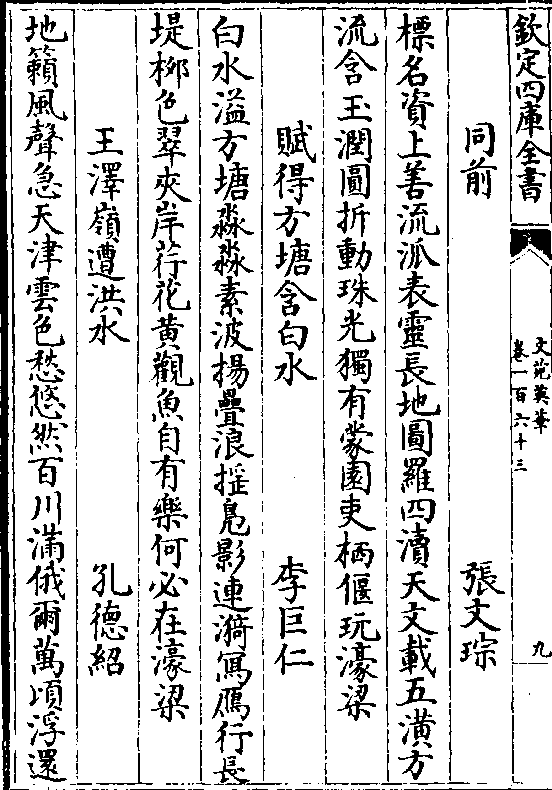 欽定四庫全書
文苑英華
卷一百六十三
九
同前 張文琮
標名資上善流派表靈長地圖羅四瀆天文載五潢方
流含玉潤圓折動珠光獨有蒙園吏栖偃玩濠梁
賦得方塘含白水 李巨仁
白水溢方塘淼淼素波揚疊浪摇鳧影連漪寫鴈行長
堤栁色翠夾岸荇花黄觀魚自有樂何必在濠梁
王澤嶺遭洪水 孔德紹
地籟風聲急天津雲色愁悠然百川滿俄爾萬頃浮還